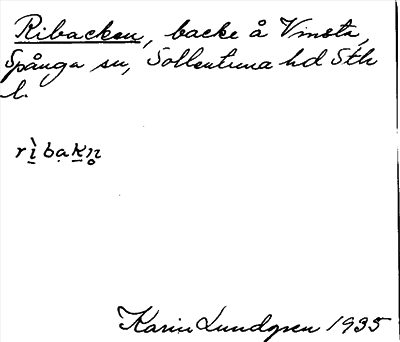 Ribacken, backe å Vinsta,
Spånga sn, Sollentuna hd Sth
l.
rìbakn̥
Karin Lundgren 1935